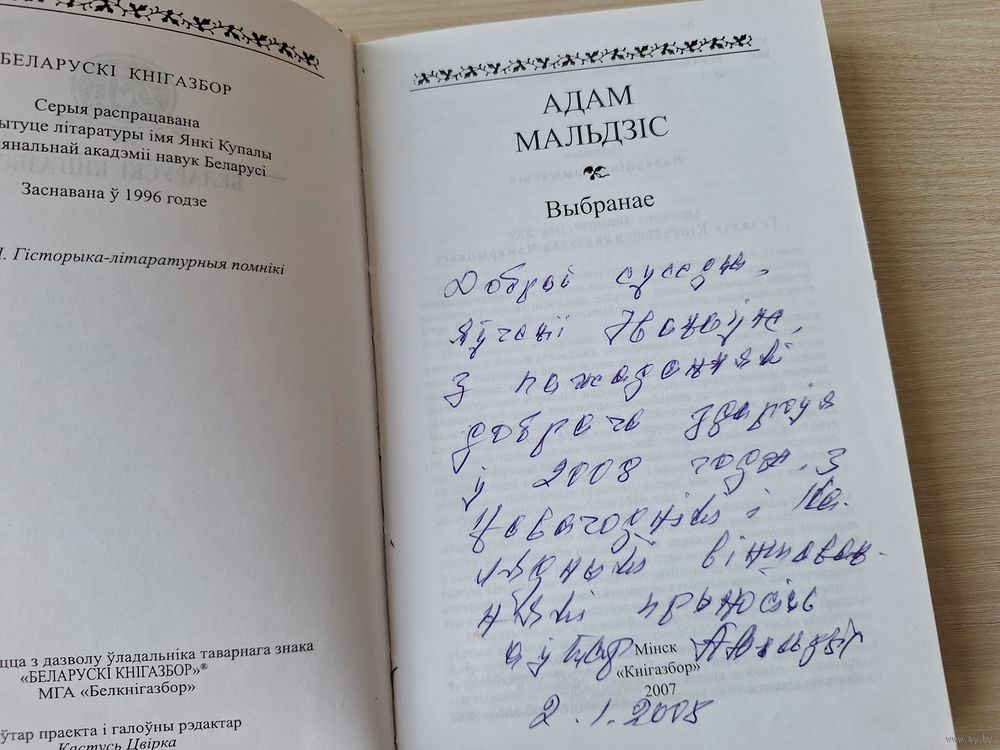 БЕЛАРУСКІ КНІГАЗБОР
Серыя распрацавана
ытуце літаратуры імя Янкі Купалы
янальнай акадэміі навук Беларусі
Заснавана ў 1996 годзе
І. Гісторыка-літаратурныя помнікі
цца з дазволу ўладальніка таварнага знака
«БЕЛАРУСКІ КНІГАЗБОР»®
МГА «Белкнігазбор»
ўтар праекта і галоўны рэдактар
Кастусь Цвірка
АДАМ
МАЛЬДЗІС
Выбранае
Добрай суседцы,
Іванаўне,
з пажаданнямі
добрага здароўя
ў 2008 годзе. З
Навагоднімі і Ка-
ляднымі віншаван-
нямі прыносіць
аўтар АМальдзіс
Мінск
«Кнігазбор»
2007
2.1.2008
www.ay.by